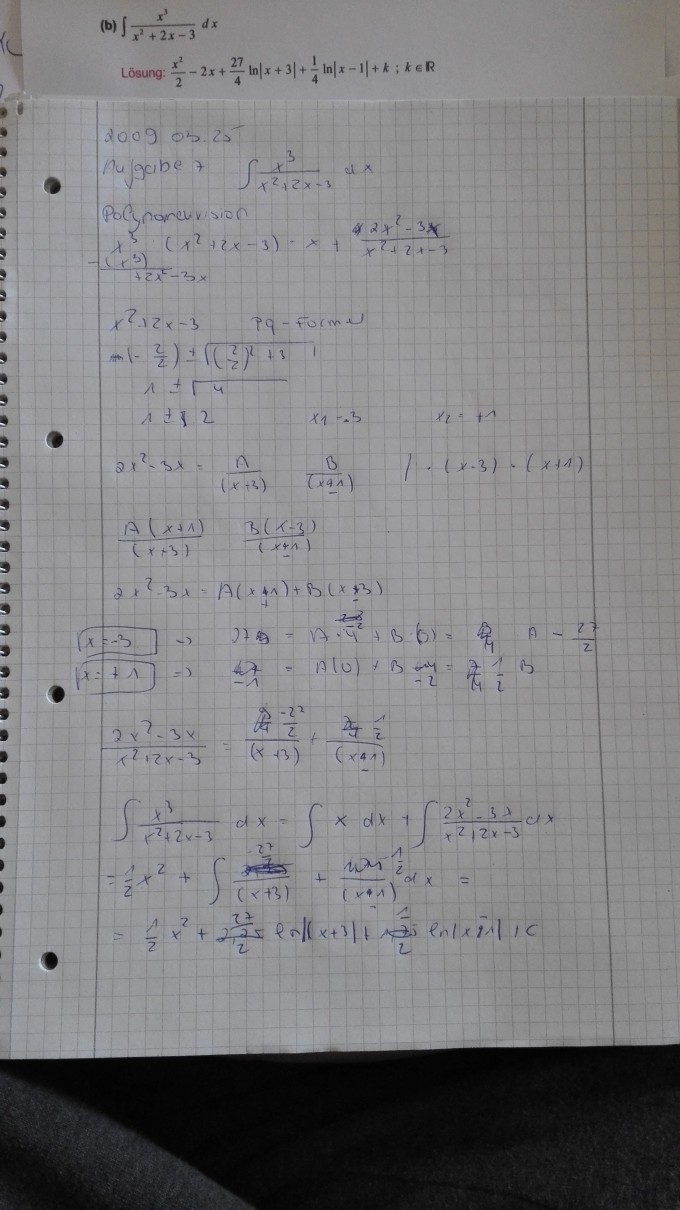 (b) ∫ x³/(x² + 2x − 3) dx
Lösung: x²/2 − 2x + 27/4 ln|x + 3| + 1/4 ln|x − 1| + k ; k ∈ ℝ
2009 03.25
Aufgabe 7 ∫ x³/(x²+2x−3) dx
Polynomdivision
x³ : (x²+2x−3) = x + (2x²−3x)/(x²+2x−3)
−(x³)
+2x²−3x
x²+2x−3 pq-Formel
(−2/2) ± √((2/2)²+3)
1 ± √4
1 ± 2 x₁ −3 x₂ = +1
2x²−3x = A/(x+3) B/(x−1) / · (x−3) · (x+1)
A(x+1)/(x+3) B(x−3)/(x−1)
2x²−3x = A(x+1)+B(x−3)
x=−3 → 27 = A·4 + B·(0) = A − 27/2
x=+1 ⇒ −1 = A(0) + B −2 = 1/2 B
(2x²−3x)/(x²+2x−3) = /(x+3) + 1/2/(x−1)
∫ x³/(x²+2x−3) dx = ∫ x dx + ∫ (2x²−3x)/(x²+2x−3) dx
= 1/2 x² + ∫ /(x+3) + 1/2/(x−1) dx =
= 1/2 x² + 27/2 ln|x+3| + 1/2 ln|x−1| + C